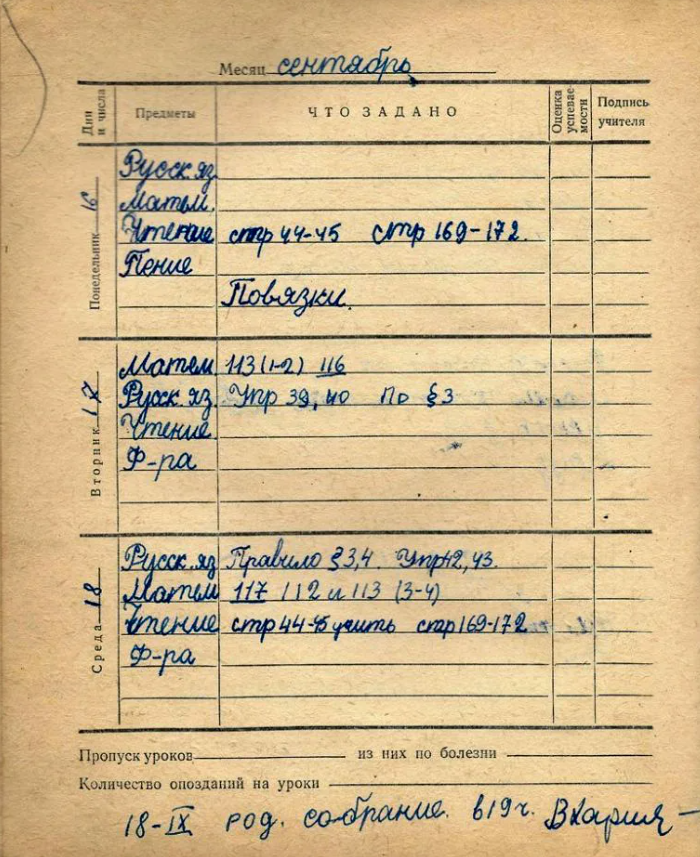 Месяц сентябрь
Дни и числа Предметы ЧТО ЗАДАНО Оценка успевае-мости Подпись учителя
Понедельник 16
Русск. яз.
Матем.
Чтение стр 44-45 стр 169-172.
Пение
Повязки.
Вторник 17
Матем 113 (1-2) 116
Русск. яз. Упр 39, 40 По § 3
Чтение.
Ф-ра
Среда 18
Русск. яз Правило § 3,4. Упр 42, 43.
Матем 117 112 и 113 (3-4)
Чтение стр 44-45 учить стр 169-172
Ф-ра
Пропуск уроков из них по болезни
Количество опозданий на уроки
18-IX род. собрание. в 19 ч.